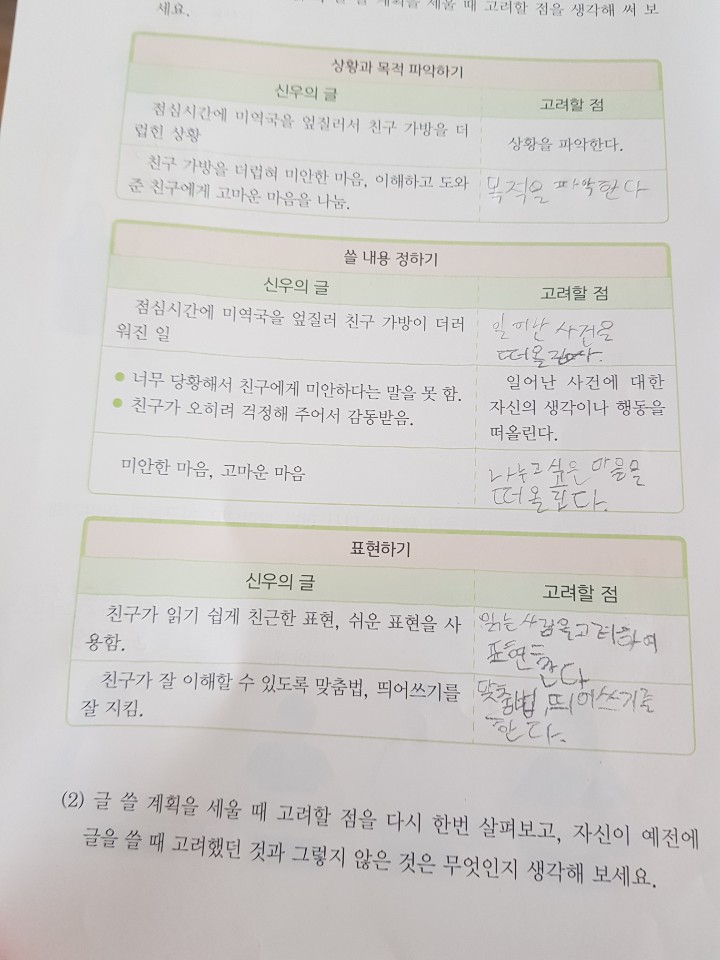 계획을 세울 때 고려할 점을 생각해 써 보
세요.
상황과 목적 파악하기
신우의 글
고려할 점
점심시간에 미역국을 엎질러서 친구 가방을 더
럽힌 상황
상황을 파악한다.
친구 가방을 더럽혀 미안한 마음, 이해하고 도와
준 친구에게 고마운 마음을 나눔.
목적을 파악한다
쓸 내용 정하기
신우의 글
고려할 점
점심시간에 미역국을 엎질러 친구 가방이 더러
워진 일
일어난 사건을
떠올린다.
너무 당황해서 친구에게 미안하다는 말을 못 함.
친구가 오히려 걱정해 주어서 감동받음.
일어난 사건에 대한
자신의 생각이나 행동을
떠올린다.
미안한 마음, 고마운 마음
나누고 싶은 마음을
떠올린다.
표현하기
신우의 글
고려할 점
친구가 읽기 쉽게 친근한 표현, 쉬운 표현을 사
용함.
읽는 사람을 고려하여
표현한다
친구가 잘 이해할 수 있도록 맞춤법, 띄어쓰기를
잘 지킴.
맞춤법, 띄어쓰기를
한다.
(2) 글 쓸 계획을 세울 때 고려할 점을 다시 한번 살펴보고, 자신이 예전에
글을 쓸 때 고려했던 것과 그렇지 않은 것은 무엇인지 생각해 보세요.